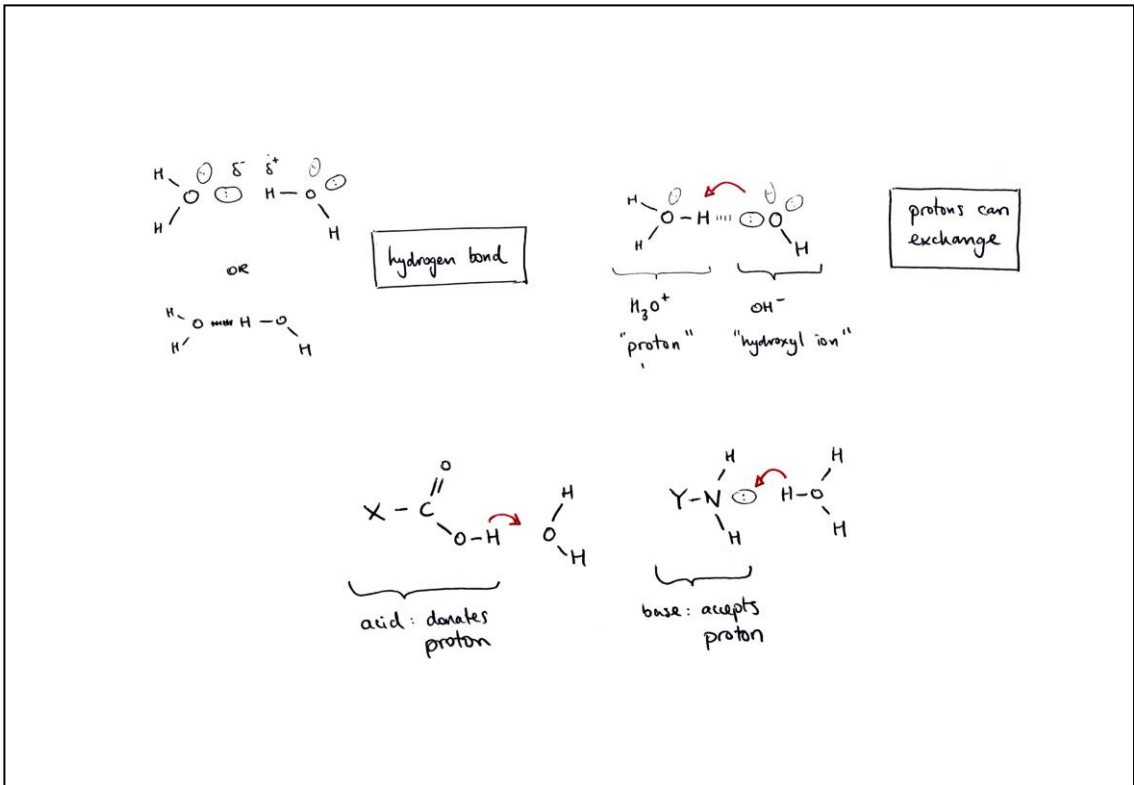 H O δ⁻ δ⁺ H – O
H H
OR
H O H – O
H H
hydrogen bond
H O – H O
H H
H₃O⁺ OH⁻
"proton" "hydroxyl ion"
protons can
exchange
O
X – C
O – H
H
O
H
acid: donates
proton
H
Y – N
H
H
H – O
H
base: accepts
proton